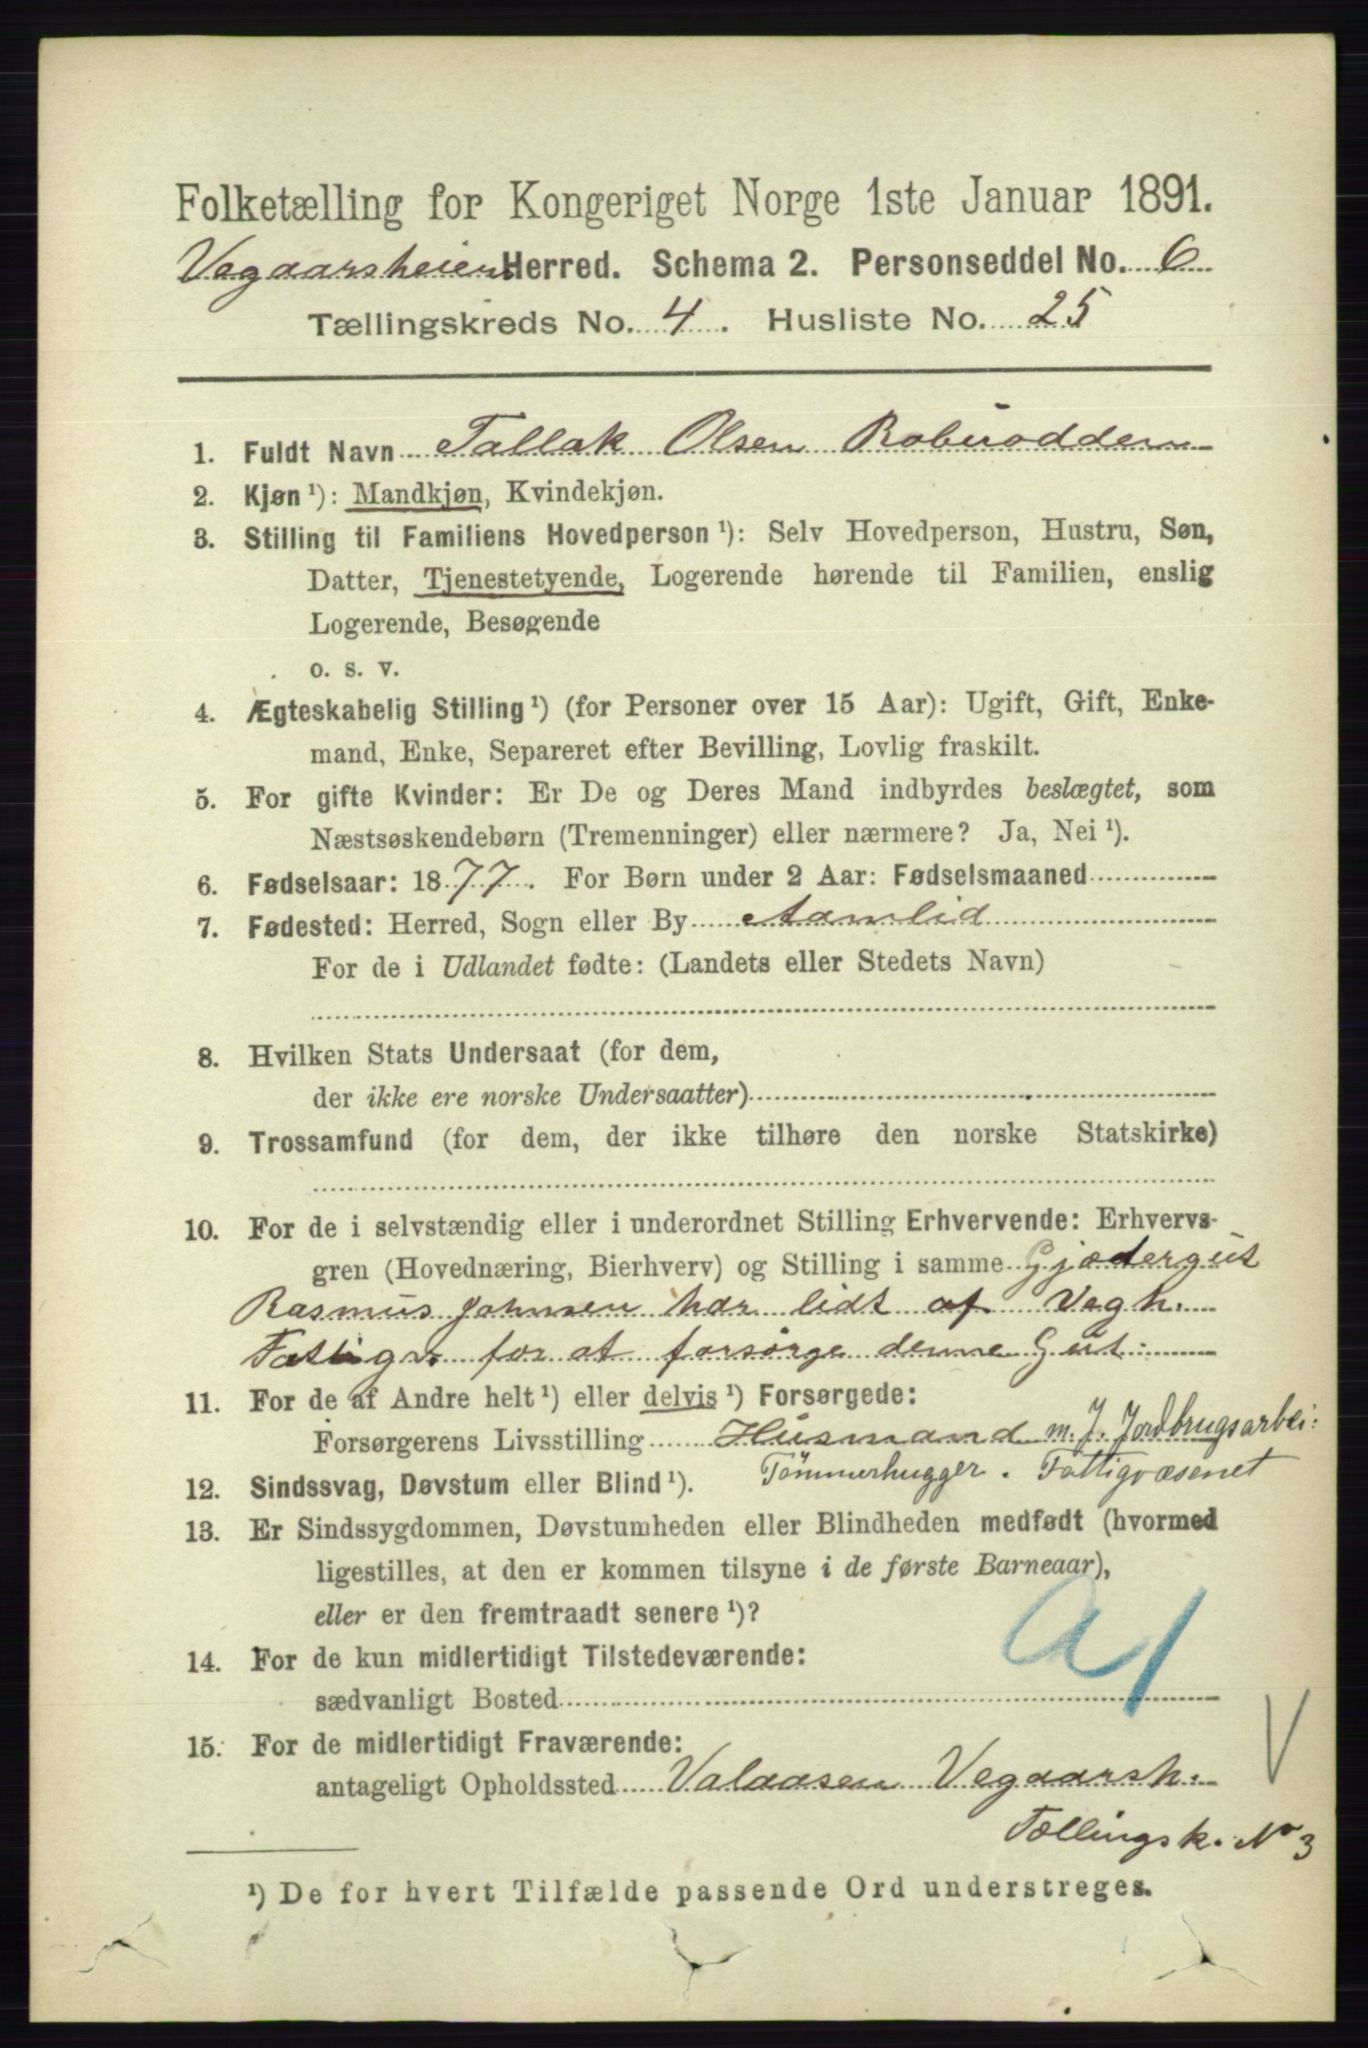 Folketælling for Kongeriget Norge 1ste Januar 1891.
Vegaarsheien Herred. Schema 2. Personseddel No. 6
Tællingskreds No. 4. Husliste No. 25
1. Fuldt Navn Tallak Olsen
2. Kjøn ¹): Mandkjøn, Kvindekjøn.
3. Stilling til Familiens Hovedperson ¹): Selv Hovedperson, Hustru, Søn,
Datter, Tjenestetyende, Logerende hørende til Familien, enslig
Logerende, Besøgende
o. s. v.
4. Ægteskabelig Stilling ¹) (for Personer over 15 Aar): Ugift, Gift, Enke-
mand, Enke, Separeret efter Bevilling, Lovlig fraskilt.
5. For gifte Kvinder: Er De og Deres Mand indbyrdes beslægtet, som
Næstsøskendebørn (Tremenninger) eller nærmere? Ja, Nei ¹).
6. Fødselsaar: 1877. For Børn under 2 Aar: Fødselsmaaned
7. Fødested: Herred, Sogn eller By Aamlid
For de i Udlandet fødte: (Landets eller Stedets Navn)
8. Hvilken Stats Undersaat (for dem,
der ikke ere norske Undersaatter)
9. Trossamfund (for dem, der ikke tilhøre den norske Statskirke)
10. For de i selvstændig eller i underordnet Stilling Erhvervende: Erhvervs-
gren (Hovednæring, Bierhverv) og Stilling i samme Gjædergut
Rasmus Johnsen har lidt af Vegh.
Fattigv. for at forsørge denne Gut.
11. For de af Andre helt ¹) eller delvis ¹) Forsørgede:
Forsørgerens Livsstilling Husmand m. J. Jordbrugsarbei:
Tømmerhugger. Fattigvæsenet
12. Sindssvag, Døvstum eller Blind ¹).
13. Er Sindssygdommen, Døvstumheden eller Blindheden medfødt (hvormed
ligestilles, at den er kommen tilsyne i de første Barneaar),
eller er den fremtraadt senere ¹)?
14. For de kun midlertidigt Tilstedeværende:
sædvanligt Bosted
15. For de midlertidigt Fraværende:
antageligt Opholdssted Valaasen Vegaarsh.
Tællingsk. No 3
¹) De for hvert Tilfælde passende Ord understreges.